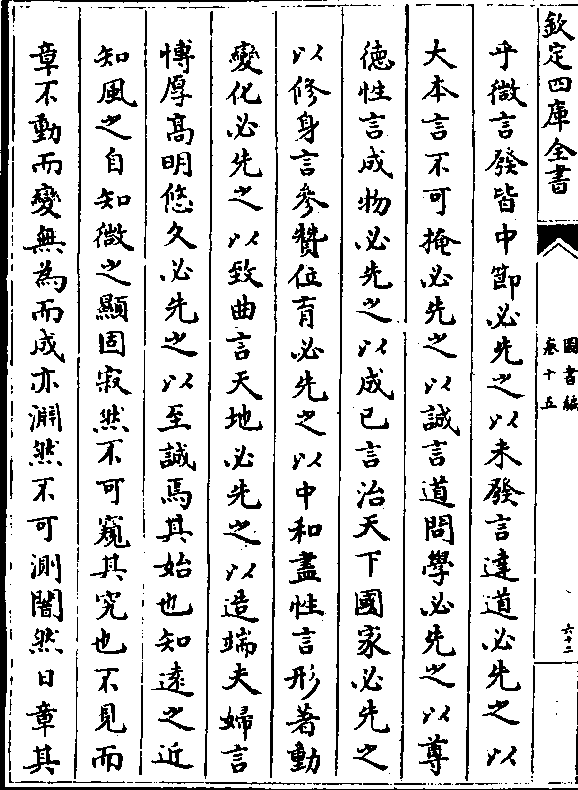 欽定四庫全書
圖書編
卷十五
六十二
乎微言發皆中節必先之以未發言達道必先之以
大本言不可掩必先之以誠言道問學必先之以尊
德性言成物必先之以成已言治天下國家必先之
以修身言參贊位育必先之以中和盡性言形著動
變化必先之以致曲言天地必先之以造端夫婦言
博厚高明悠久必先之以至誠焉其始也知遠之近
知風之自知微之顯固寂然不可窺其究也不見而
章不動而變無為而成亦淵然不可測闇然日章其